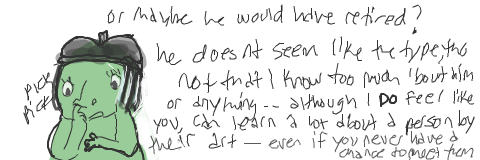 or maybe he would have retired?
he doesnt seem like the type, tho
not that I know too much 'bout him
or anything -- although I DO feel like
you, can learn a lot about a person by
their art — even if you never have a
chance to meet them
pick
pick